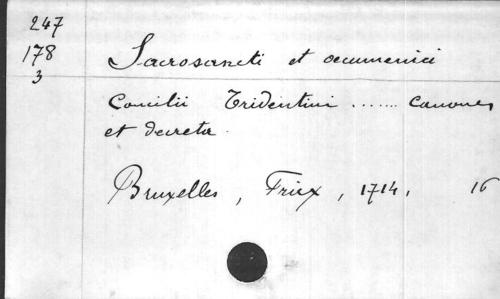 247
178
3
Sacrosancti et œcumenici
Concilii Tridentini ....... canones
et decreta.
Bruxelles, Fricx, 1714. 16